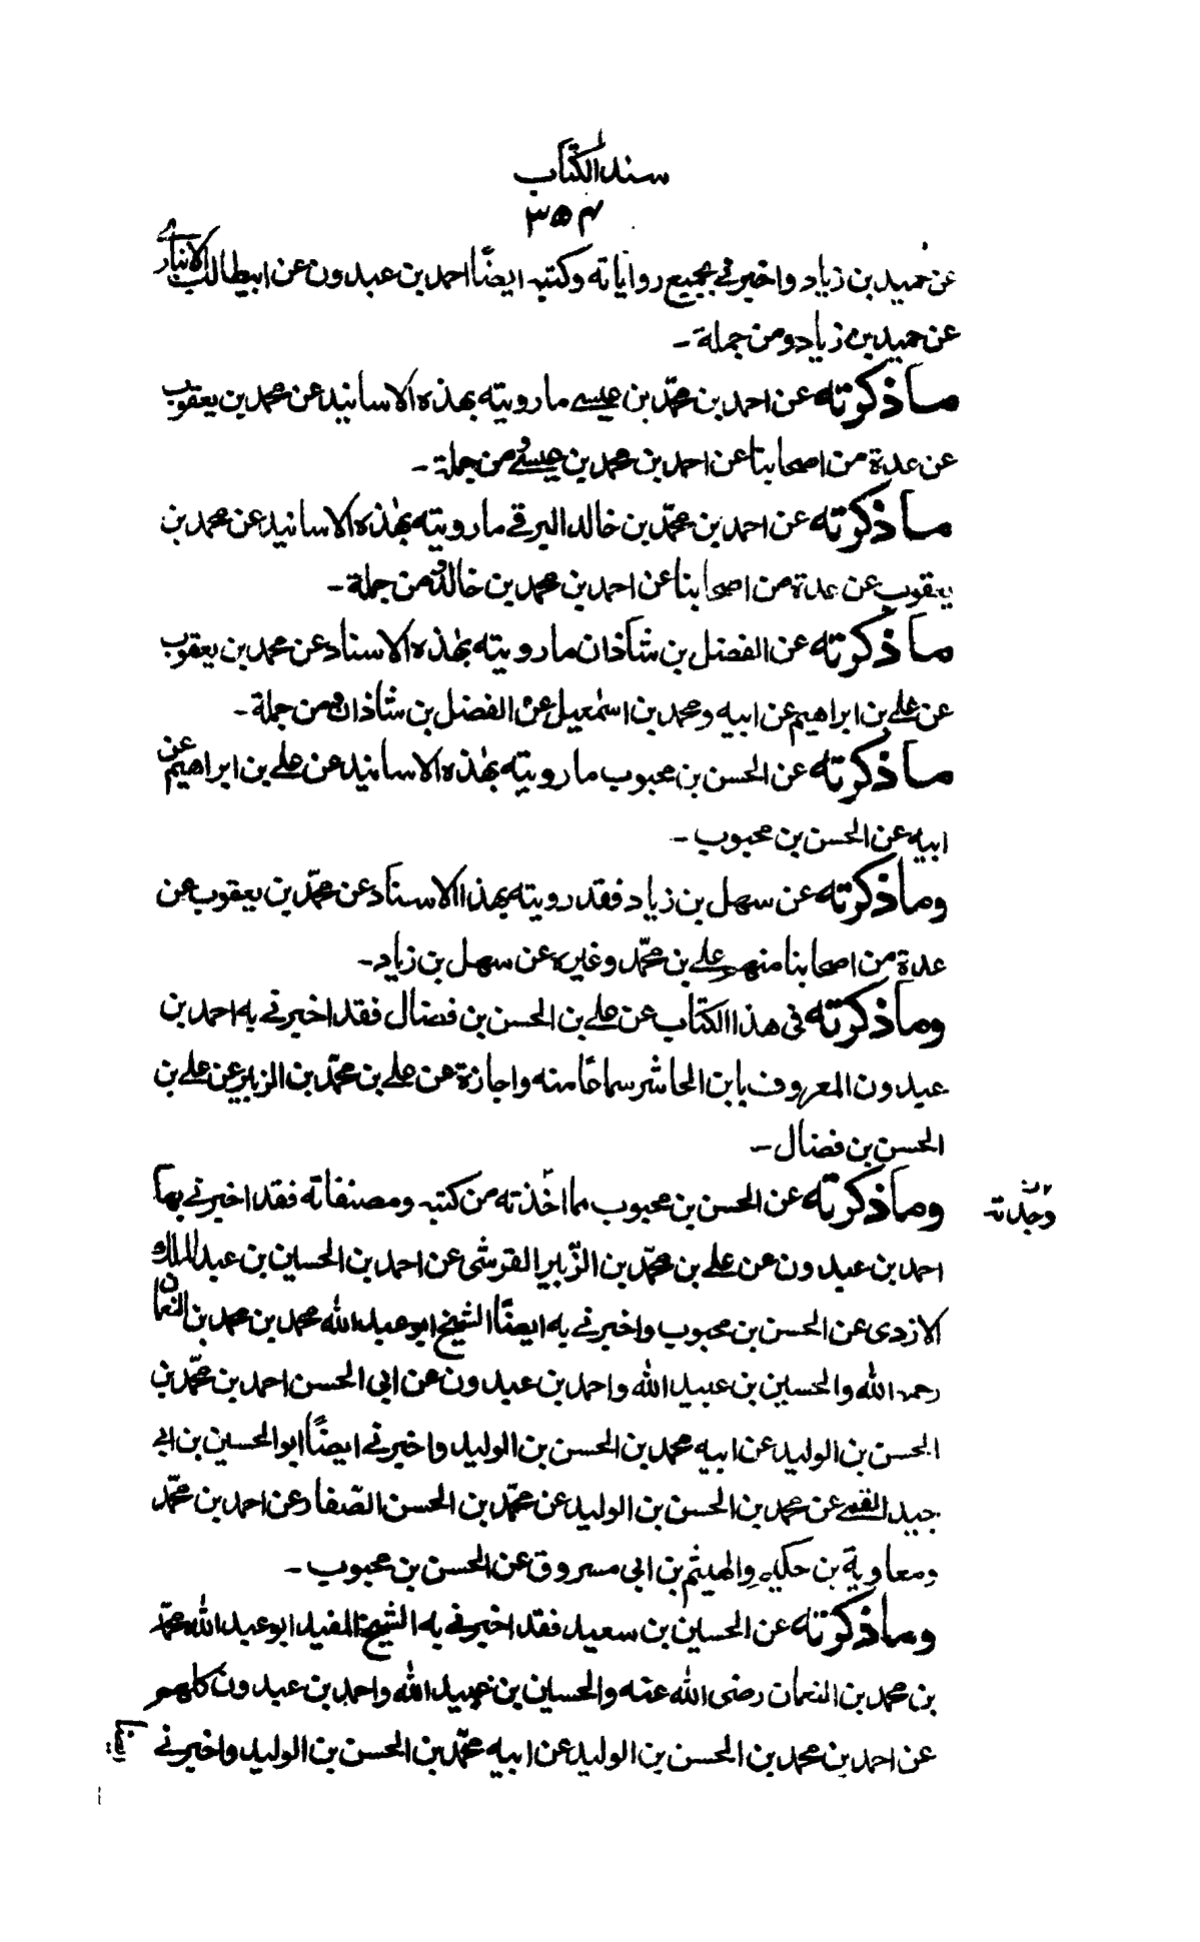 سند الكتاب
٣٥٤
عن حميد بن زياد واخبرنے بجميع رواياته وكتبه ايضًا احمد بن عبدون عن ابيطالب الانبارے
عن حميد بن زياد ومن جملة ـ
ما ذكرته عن احمد بن محمّد بن عيسے ما رويته بهذه الاسانيد عن محمد بن يعقوب
عن عدة من اصحابنا عن احمد بن محمد بن عيسے ومن جملة ـ
ما ذكرته عن احمد بن محمّد بن خالد البرقے ما رويته بهٰذه الاسانيد عن محمد بن
يعقوب عن عدة من اصحابنا عن احمد بن محمد بن خالد ومن جملة ـ
ما ذكرته عن الفضل بن شاذان ما رويته بهٰذه الاسناد عن محمد بن يعقوب
عن علے بن ابراهيم عن ابيه ومحمد بن اسمٰعيل عن الفضل بن شاذان ومن جملة ـ
ما ذكرته عن الحسن بن محبوب ما رويته بهٰذه الاسانيد عن علے بن ابراهيم عن
ابيه عن الحسن بن محبوب ـ
وما ذكرته عن سهل بن زياد فقد رويته بهذا الاسناد عن محمّد بن يعقوب عن
عدة من اصحابنا منهم علے بن محمّد وغيره عن سهل بن زياد ـ
وما ذكرته فى هذا الكتاب عن علے بن الحسن بن فضال فقد اخبرنے به احمد بن
عبدون المعروف بابن الحاشر سماعًا منه واجازة عن علے بن محمّد بن الزبير عن علے بن
الحسن بن فضال ـ
وما ذكرته عن الحسن بن محبوب مما اخذته من كتبه ومصنفاته فقد اخبرنے بها
وجدته
احمد بن عبدون عن علے بن محمّد بن الزّبير القرشى عن احمد بن الحسين بن عبد الملك
الازدى عن الحسن بن محبوب واخبرنے به ايضًا الشيخ ابو عبد الله محمد بن محمد بن النعمان
رحمه الله والحسين بن عبيد الله واحمد بن عبدون عن ابى الحسن احمد بن محمّد بن
الحسن بن الوليد عن ابيه محمد بن الحسن بن الوليد واخبرنے ايضًا ابو الحسين بن ابے
جيد القمے عن محمد بن الحسن بن الوليد عن محمّد بن الحسن الصّفار عن احمد بن محمّد
ومعاوية بن حكيم والهيثم بن ابى مسروق عن الحسن بن محبوب ـ
وما ذكرته عن الحسين بن سعيد فقد اخبرنے به الشيخ المفيد ابو عبد الله محمّد
بن محمد بن النعمان رضى الله عنه والحسين بن عبيد الله واحمد بن عبدون كلهم
عن احمد بن محمد بن الحسن بن الوليد عن ابيه محمّد بن الحسن بن الوليد واخبرنے